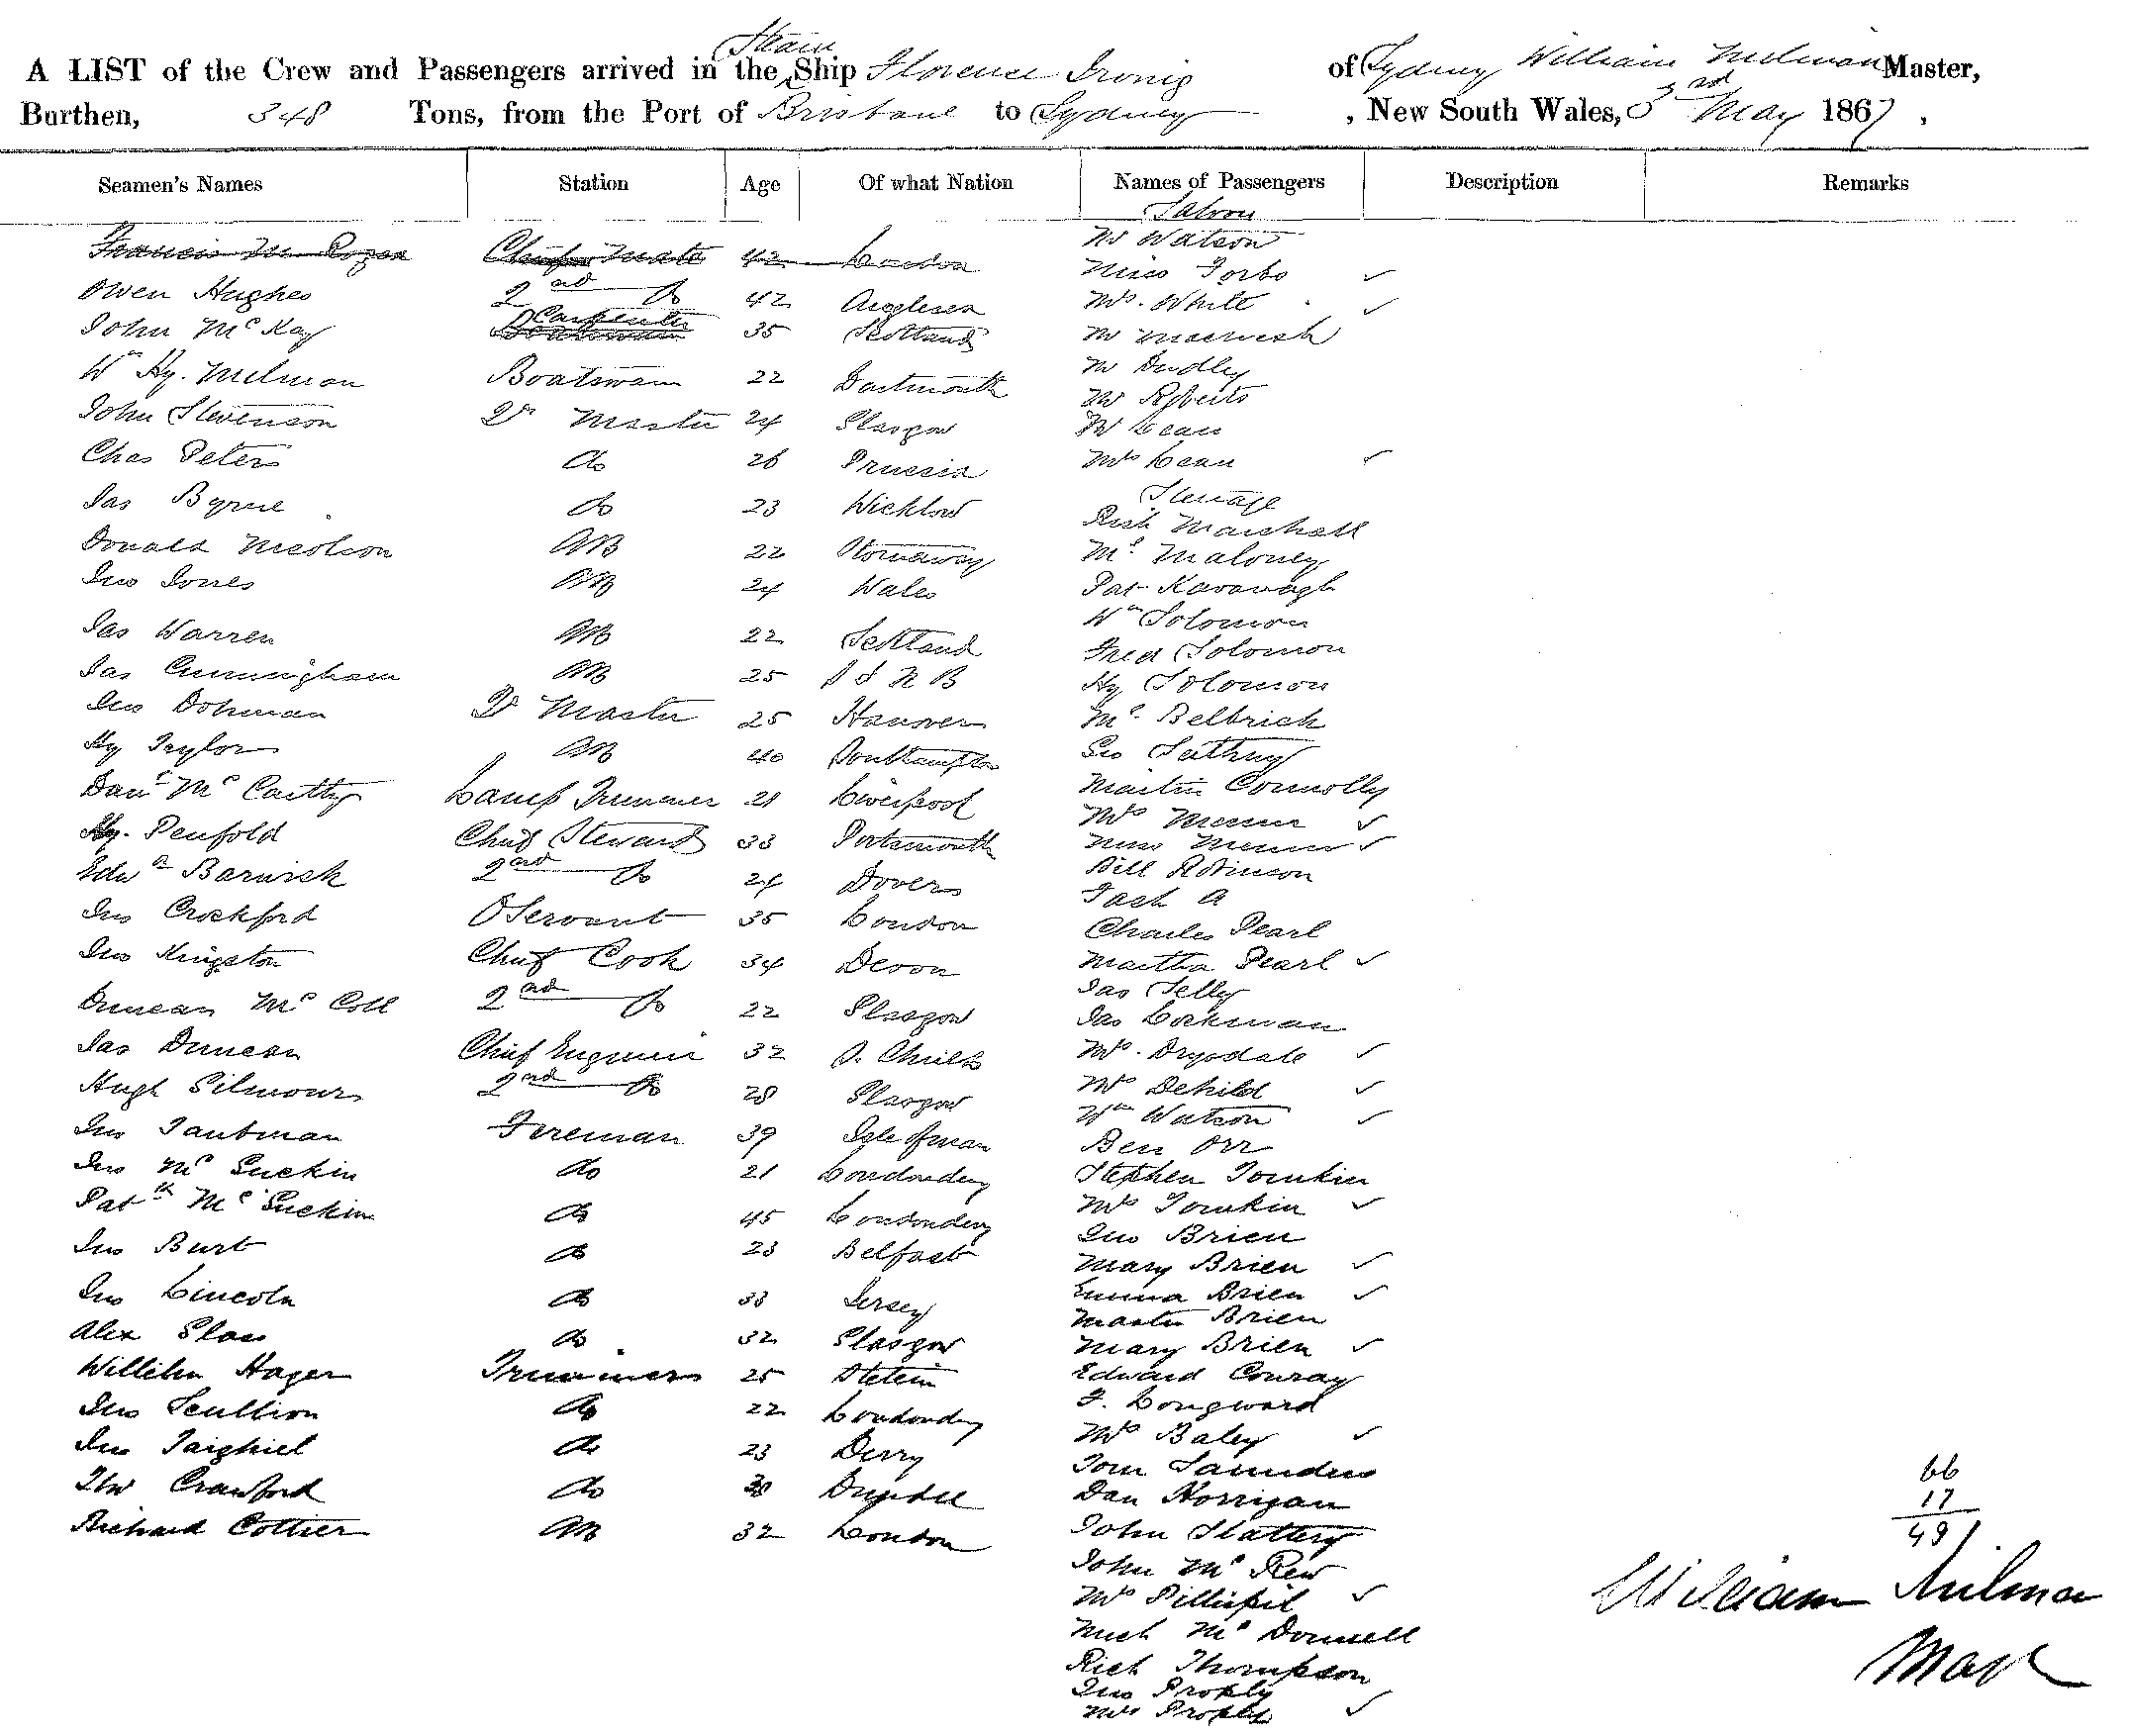 Steam
A LIST of the Crew and Passengers arrived in the Ship Florence Irving of Sydney William Milman Master,
Burthen, 348 Tons, from the Port of Brisbane to Sydney, New South Wales, 3rd May 1867,
Seamen's Names Station Age Of what Nation Names of Passengers Description Remarks
Saloon
Francis Chief Mate 42 London Mr Watson
Owen Hughes 2nd Do 42 Anglesea Miss Forbs
John McKay Carpenter 35 Scotland Mrs. White
Wm Hy. Milman Boatswain 22 Dartmouth Mr
John Stevenson Qr Master 24 Glasgow Mr Dudley
Chas Peters Do 26 Prussia Mr Roberts
Jas Byrne Do 23 Wicklow Mr Lean
Donald Nicolson AB 22 Stornaway Mrs Lean
Jno Jones AB 24 Wales Steerage
Jas Warren AB 22 Scotland Rich Marshall
Jas Cunningham AB 25 Mr Maloney
Jno Dohman Qr Master 25 Hanover Pat Kavanagh
Hy Taylor AB 40 Southampton Wm Solomon
Danl McCarthy Lamp Trimmer 21 Liverpool Fred Solomon
Hy. Penfold Chief Steward 33 Portsmouth Hy Solomon
Edwd Barwick 2nd Do 24 Dovers Mr. Belbrick
Jno Crockford Servant 35 London Geo
Jno Kingston Chief Cook 34 Devon Martin Connolly
Duncan McColl 2nd Do 22 Glasgow Mrs
Jas Duncan Chief Engineer 32 Miss
Hugh Gilmour 2nd Do 28 Glasgow Bill Robinson
Jno Taubman Fireman 39 Isle of man
Jno McGuckin Do 21 Londonderry Charles Pearl
Patk McGuckin Do 45 Londonderry Martha Pearl
Jno Burt Do 23 Belfast Jas Selly
Jno Lincoln Do 33 Jersey Jas
Alex Glass Do 32 Glasgow Mrs. Drysdale
Hager Trimmers 25 Stetein Mrs Dehild
Jno Scullion Do 22 Londonderry Wm Watson
Jno Do 23 Derry Ben Orr
Crawford Do 30 Dundee Stephen Tomkin
Richard Cottier AB 32 London Mrs Tomkin
Jno Brien
Mary Brien
Emma Brien
Master Brien
Mary Brien
Edward Conray
F. Longward
Mrs Baley
Tom Saunders
Dan Horrigan
John Slattery
John McRew
Mrs
Mich McDonnell
Rich Thompson
Jno Proply
Mrs Proply
66
17
49
William Milman
Mast